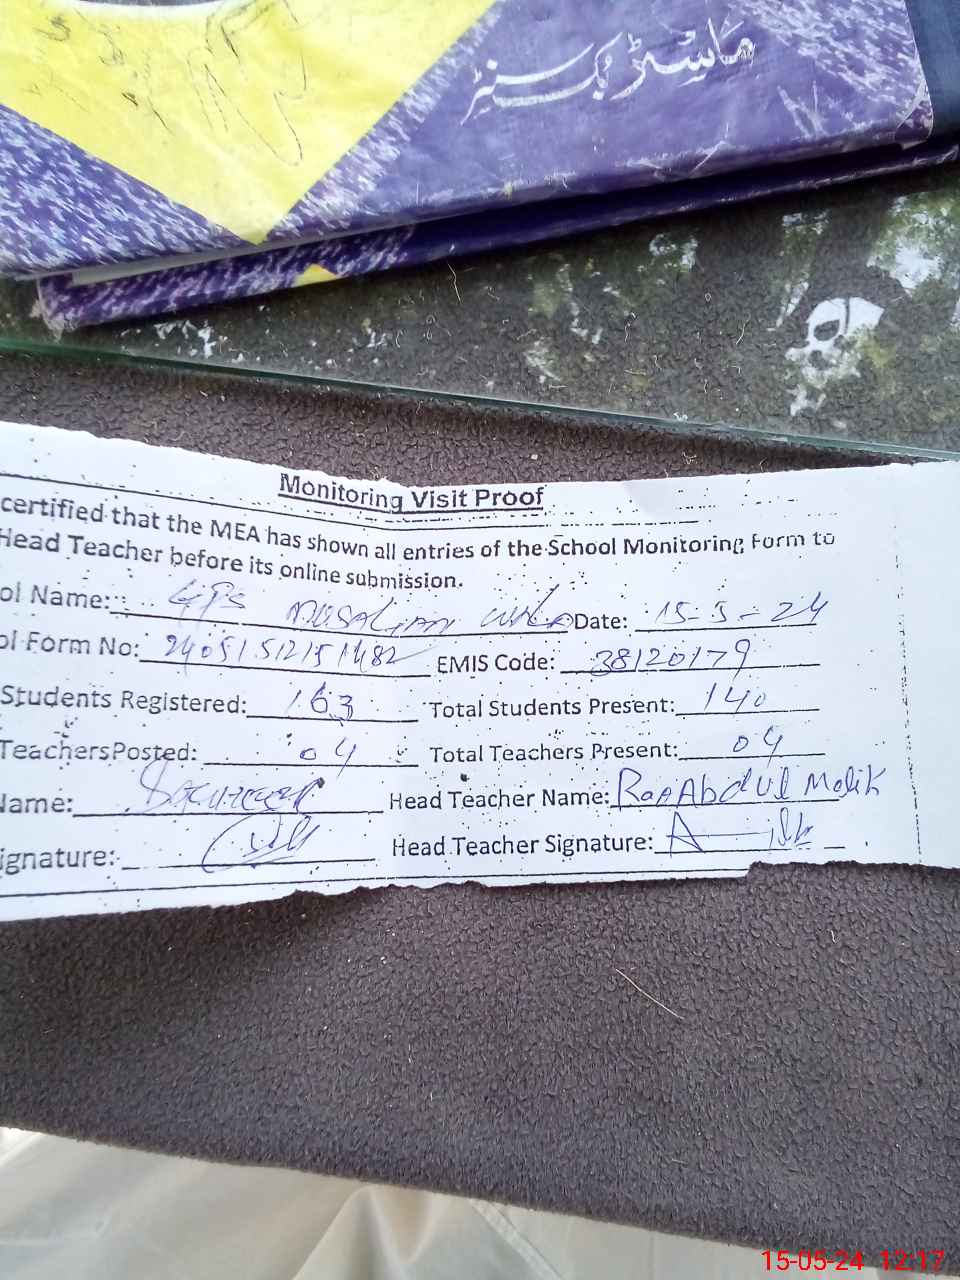 ماسٹر بک سنٹر
Monitoring Visit Proof
certified that the MEA has shown all entries of the School Monitoring Form to
Head Teacher before its online submission.
ol Name: GPS MUSALIAN WALA Date: 15-5-24
ol Form No: 24051512151482 EMIS Code: 38120179
Students Registered: 163 Total Students Present: 140
Teachers Posted: 04 Total Teachers Present: 04
Name: Head Teacher Name: Rao Abdul Malik
ignature: Head Teacher Signature:
15-05-24 12:17